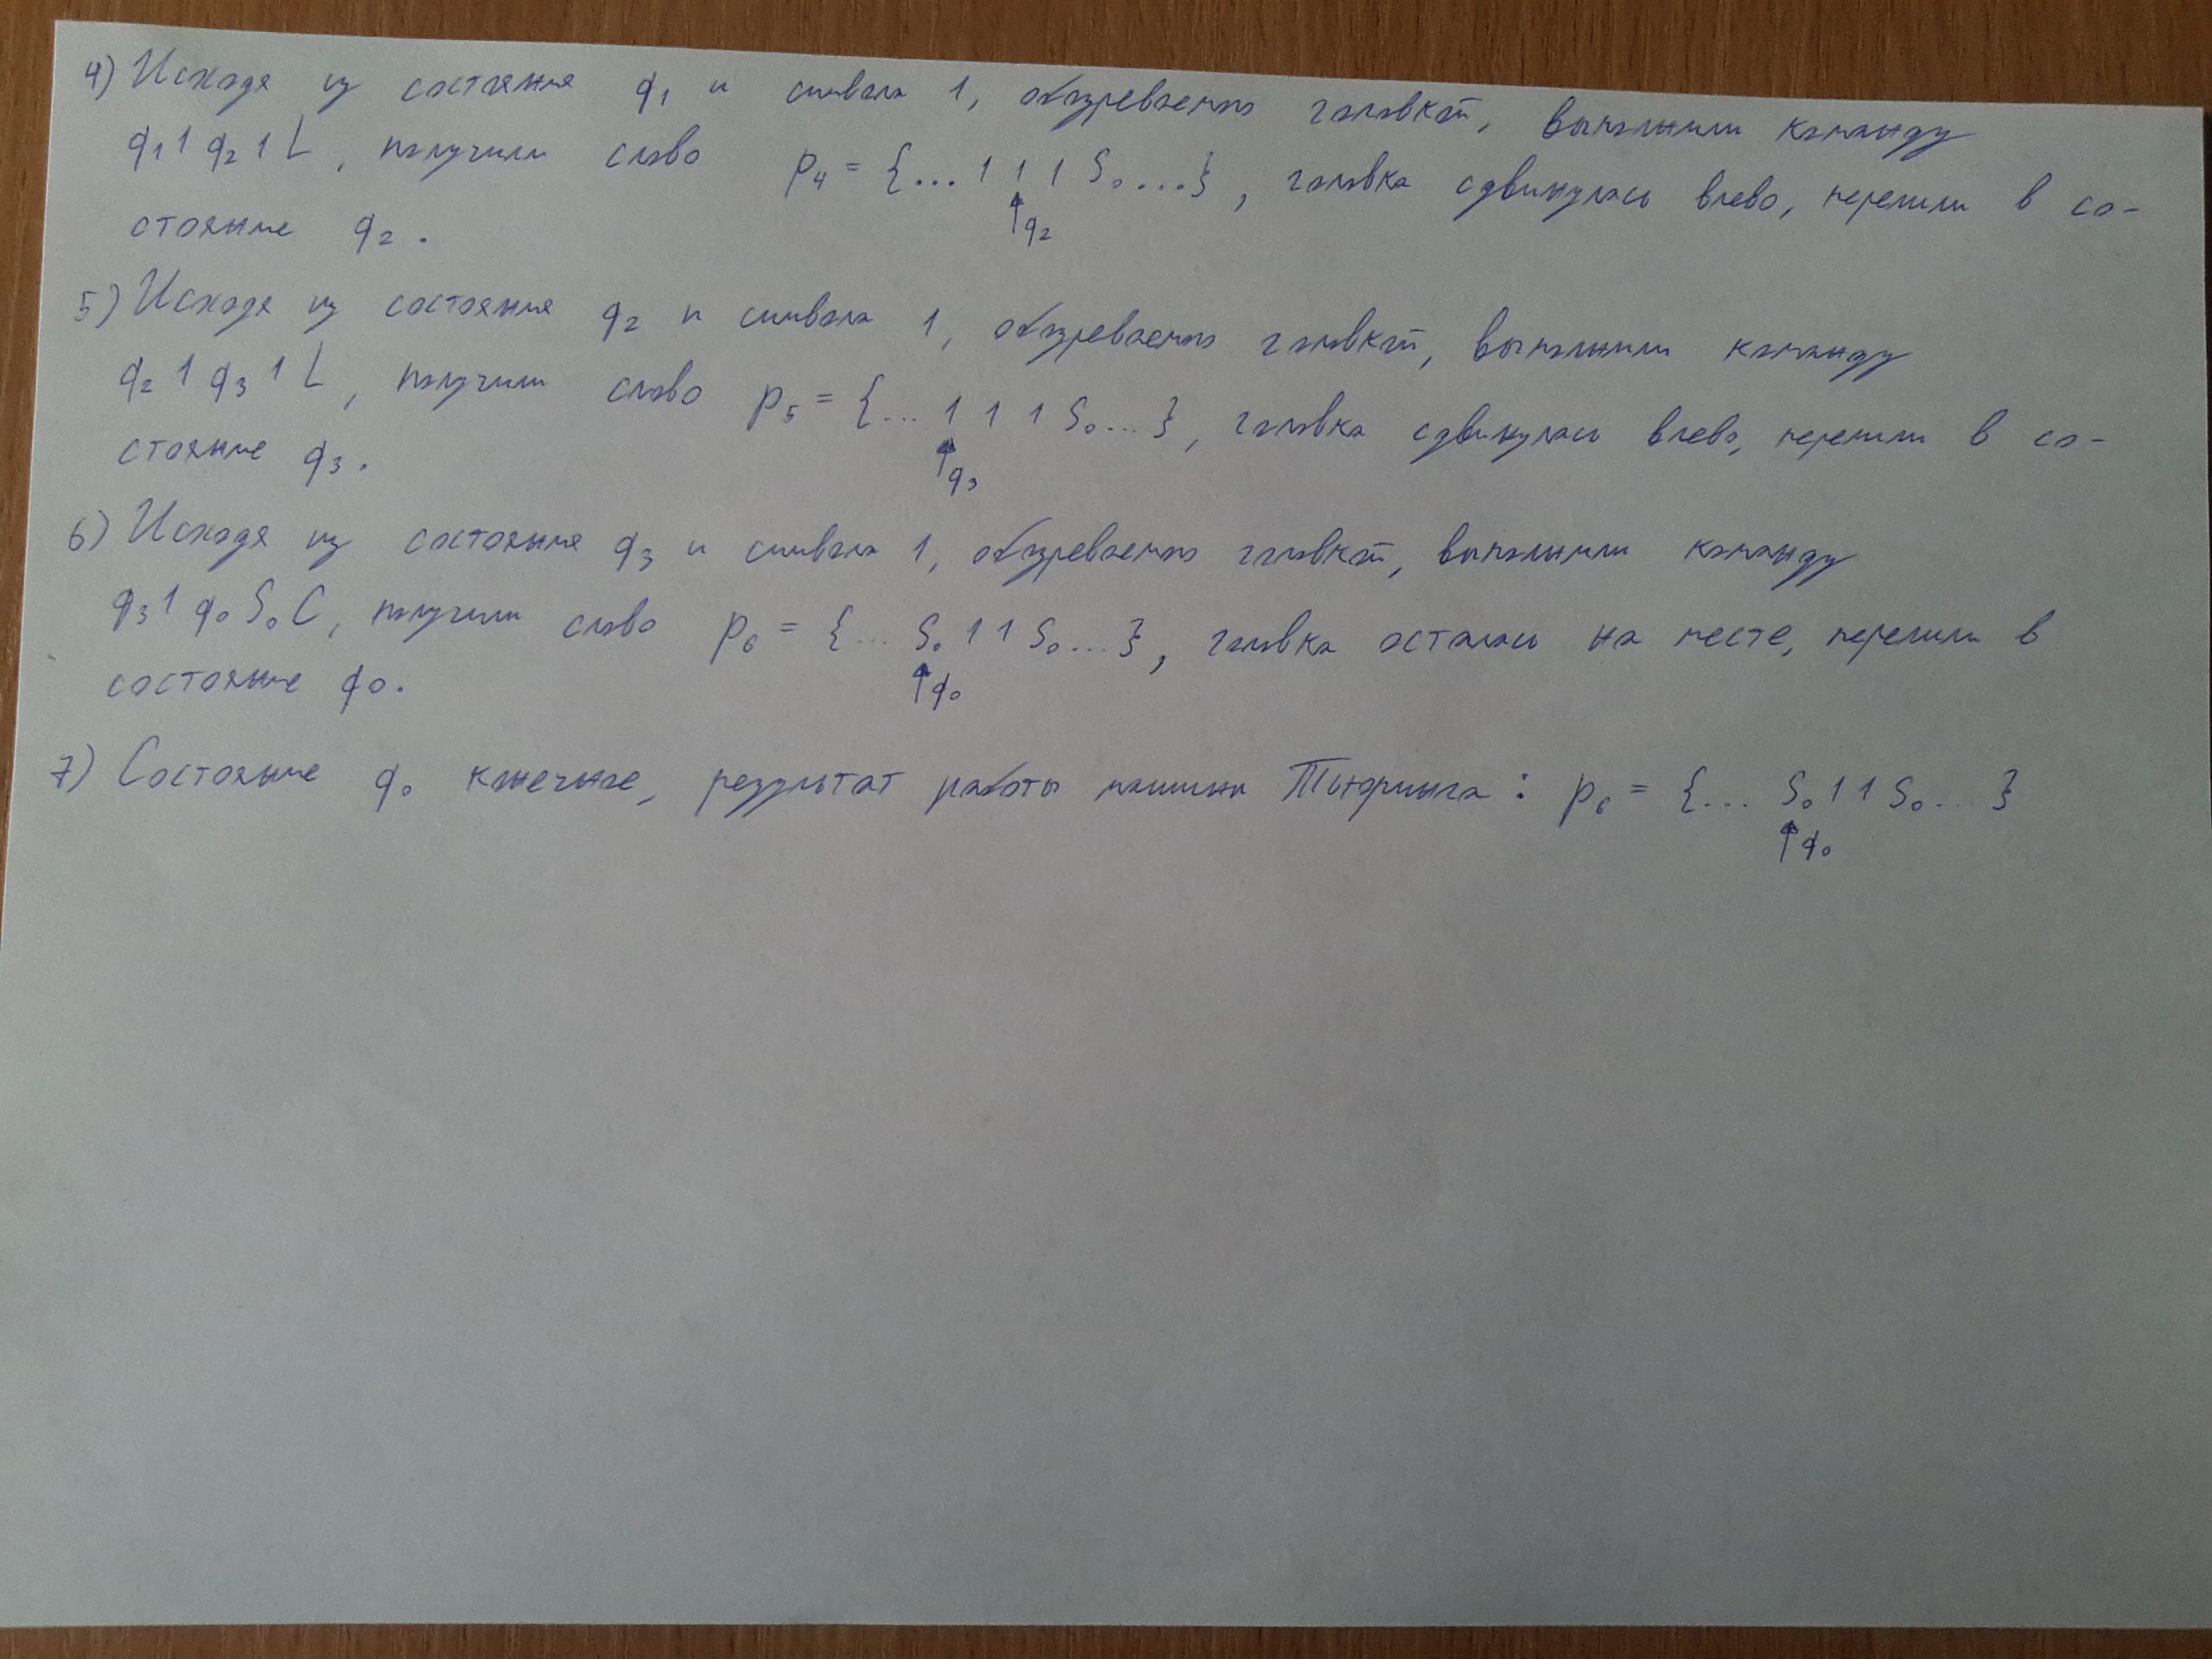 4) Исходя из состояния q₁ и символа 1, обозреваемого головкой, выполнили команду
q₁ 1 q₂ 1 L, получили слово p₄ = {... 1 1 1 S₀ ...}, головка сдвинулась влево, перешли в со-
↑q₂
стояние q₂.
5) Исходя из состояния q₂ и символа 1, обозреваемого головкой, выполнили команду
q₂ 1 q₃ 1 L, получили слово p₅ = {... 1 1 1 S₀ ...}, головка сдвинулась влево, перешли в со-
↑q₃
стояние q₃.
6) Исходя из состояния q₃ и символа 1, обозреваемого головкой, выполнили команду
q₃ 1 q₀ S₀ C, получили слово p₆ = {... S₀ 1 1 S₀ ...}, головка осталась на месте, перешли в
↑q₀
состояние q₀.
7) Состояние q₀ конечное, результат работы машины Тьюринга: p₆ = {... S₀ 1 1 S₀ ...}
↑q₀